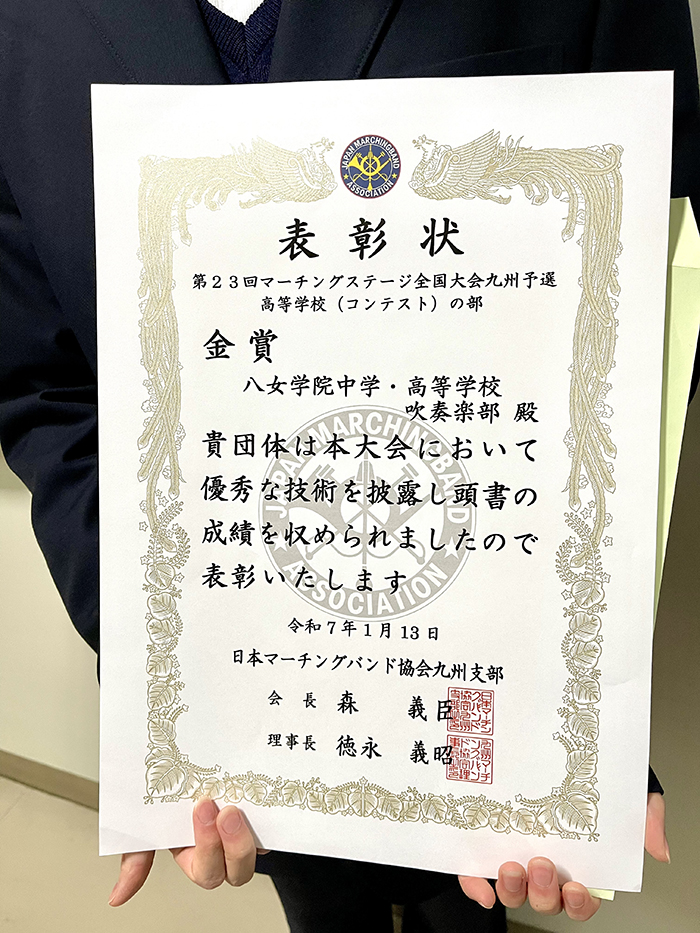 JAPAN MARCHINGBAND ASSOCIATION
表彰状
第23回マーチングステージ全国大会九州予選
高等学校(コンテスト)の部
金賞
八女学院中学・高等学校
吹奏楽部 殿
貴団体は本大会において
優秀な技術を披露し頭書の
成績を収められましたので
表彰いたします
JAPAN MARCHINGBAND ASSOCIATION
令和7年1月13日
日本マーチングバンド協会九州支部
会長 森 義臣
理事長 徳永 義昭